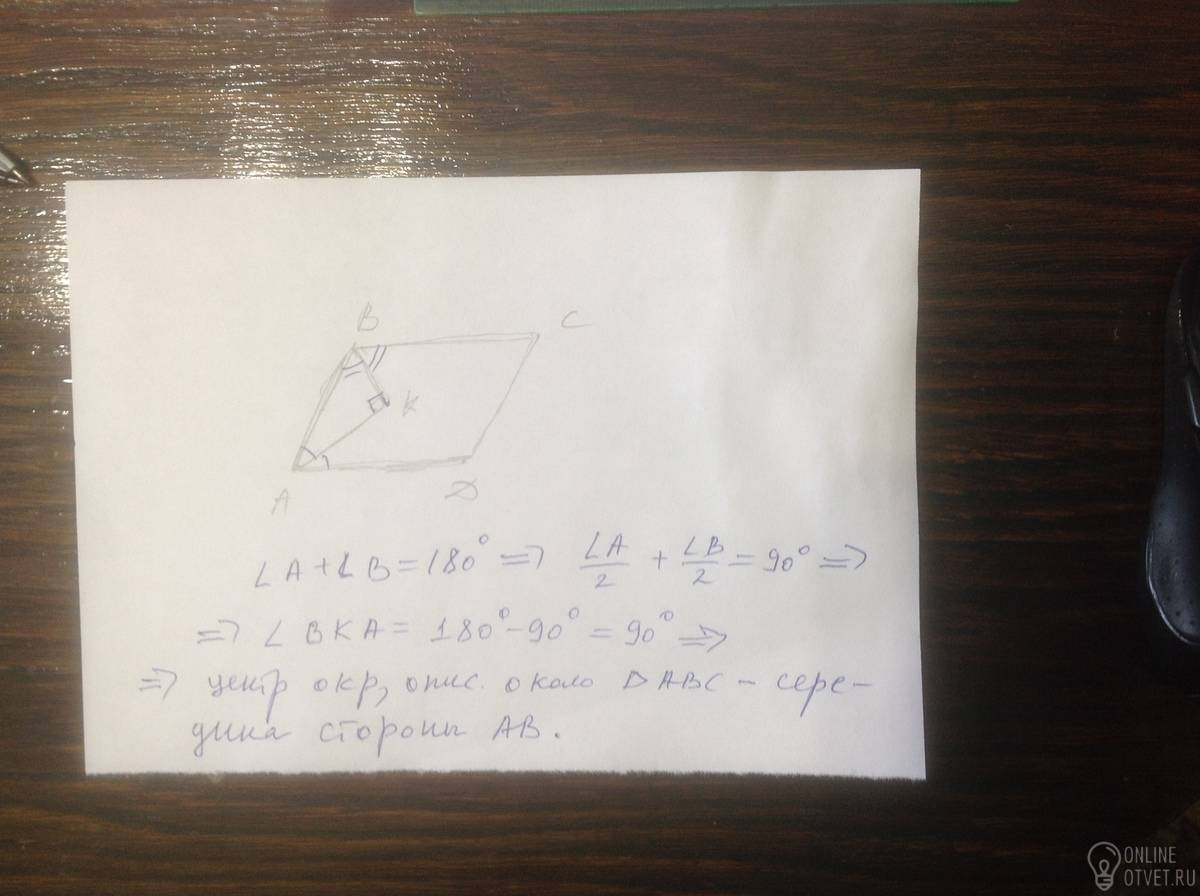 B
C
K
A
D
∠A+∠B=180°⇒ ∠A/2 + ∠B/2 = 90° ⇒
⇒ ∠BKA= 180°-90°=90° ⇒
⇒ центр окр, опис. около ΔABC - сере-
дина стороны AB.
ONLINE
OTVET.RU